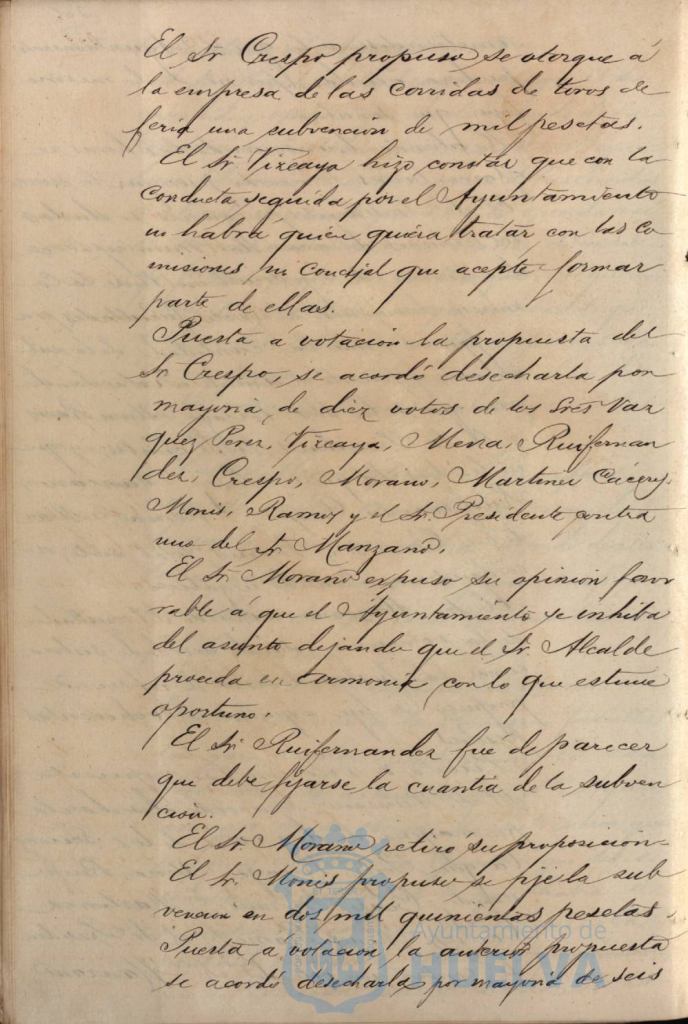 El Sr Crespo propuso se otorgue á
la empresa de las corridas de toros de
feria una subvención de mil pesetas.
El Sr Vizcaya hizo constar que con la
conducta seguida por el Ayuntamiento
ni habrá quien quiera tratar con las co
misiones ni Concejal que acepte formar
parte de ellas.
Puesta á votación la propuesta del
Sr Crespo, se acordó desecharla por
mayoria de diez votos de los Sres Vaz
quez Perez, Vizcaya, Mena, Ruifernan
dez, Crespo, Morano, Martinez Cáceres,
Monis, Ramos y el Sr. Presidente contra
uno del Sr Manzano.
El Sr Morano expuso su opinion favo
rable á que el Ayuntamiento se inhiba
del asunto dejando que el Sr. Alcalde
proceda en armonia con lo que estime
oportuno.
El Sr Ruifernandez fué de parecer
que debe fijarse la cuantia de la subven
ción.
El Sr. Morano retiró su proposición
El Sr. Monis propuso se fije la sub
vencion en dos mil quinientas pesetas.
Puesta á votación la anterior propuesta
se acordó desecharla por mayoria de seis
Ayuntamiento de
HUELVA